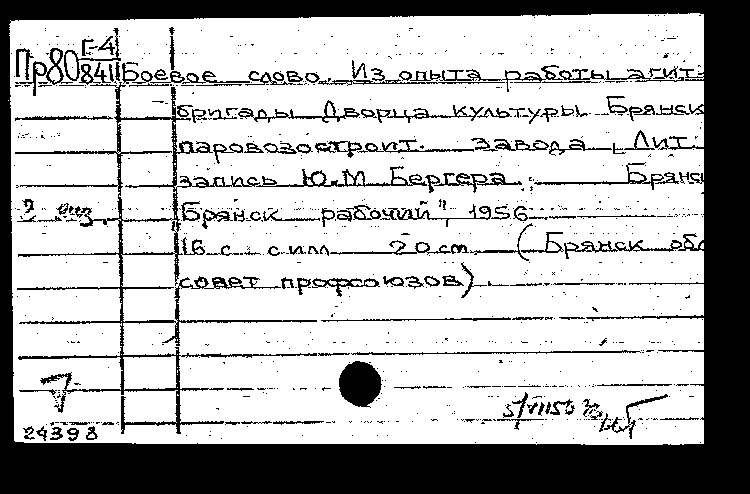 Пр80 Г-4
841
Боевое слово. Из опыта работы агит-
бригады Дворца культуры Брянск
паровозостроит. завода [Лит.
запись Ю.М Бергера. Брянс
2 экз. "Брянск рабочий", 1956
16 с. с илл 20 см (Брянск обл
совет профсоюзов).
24398